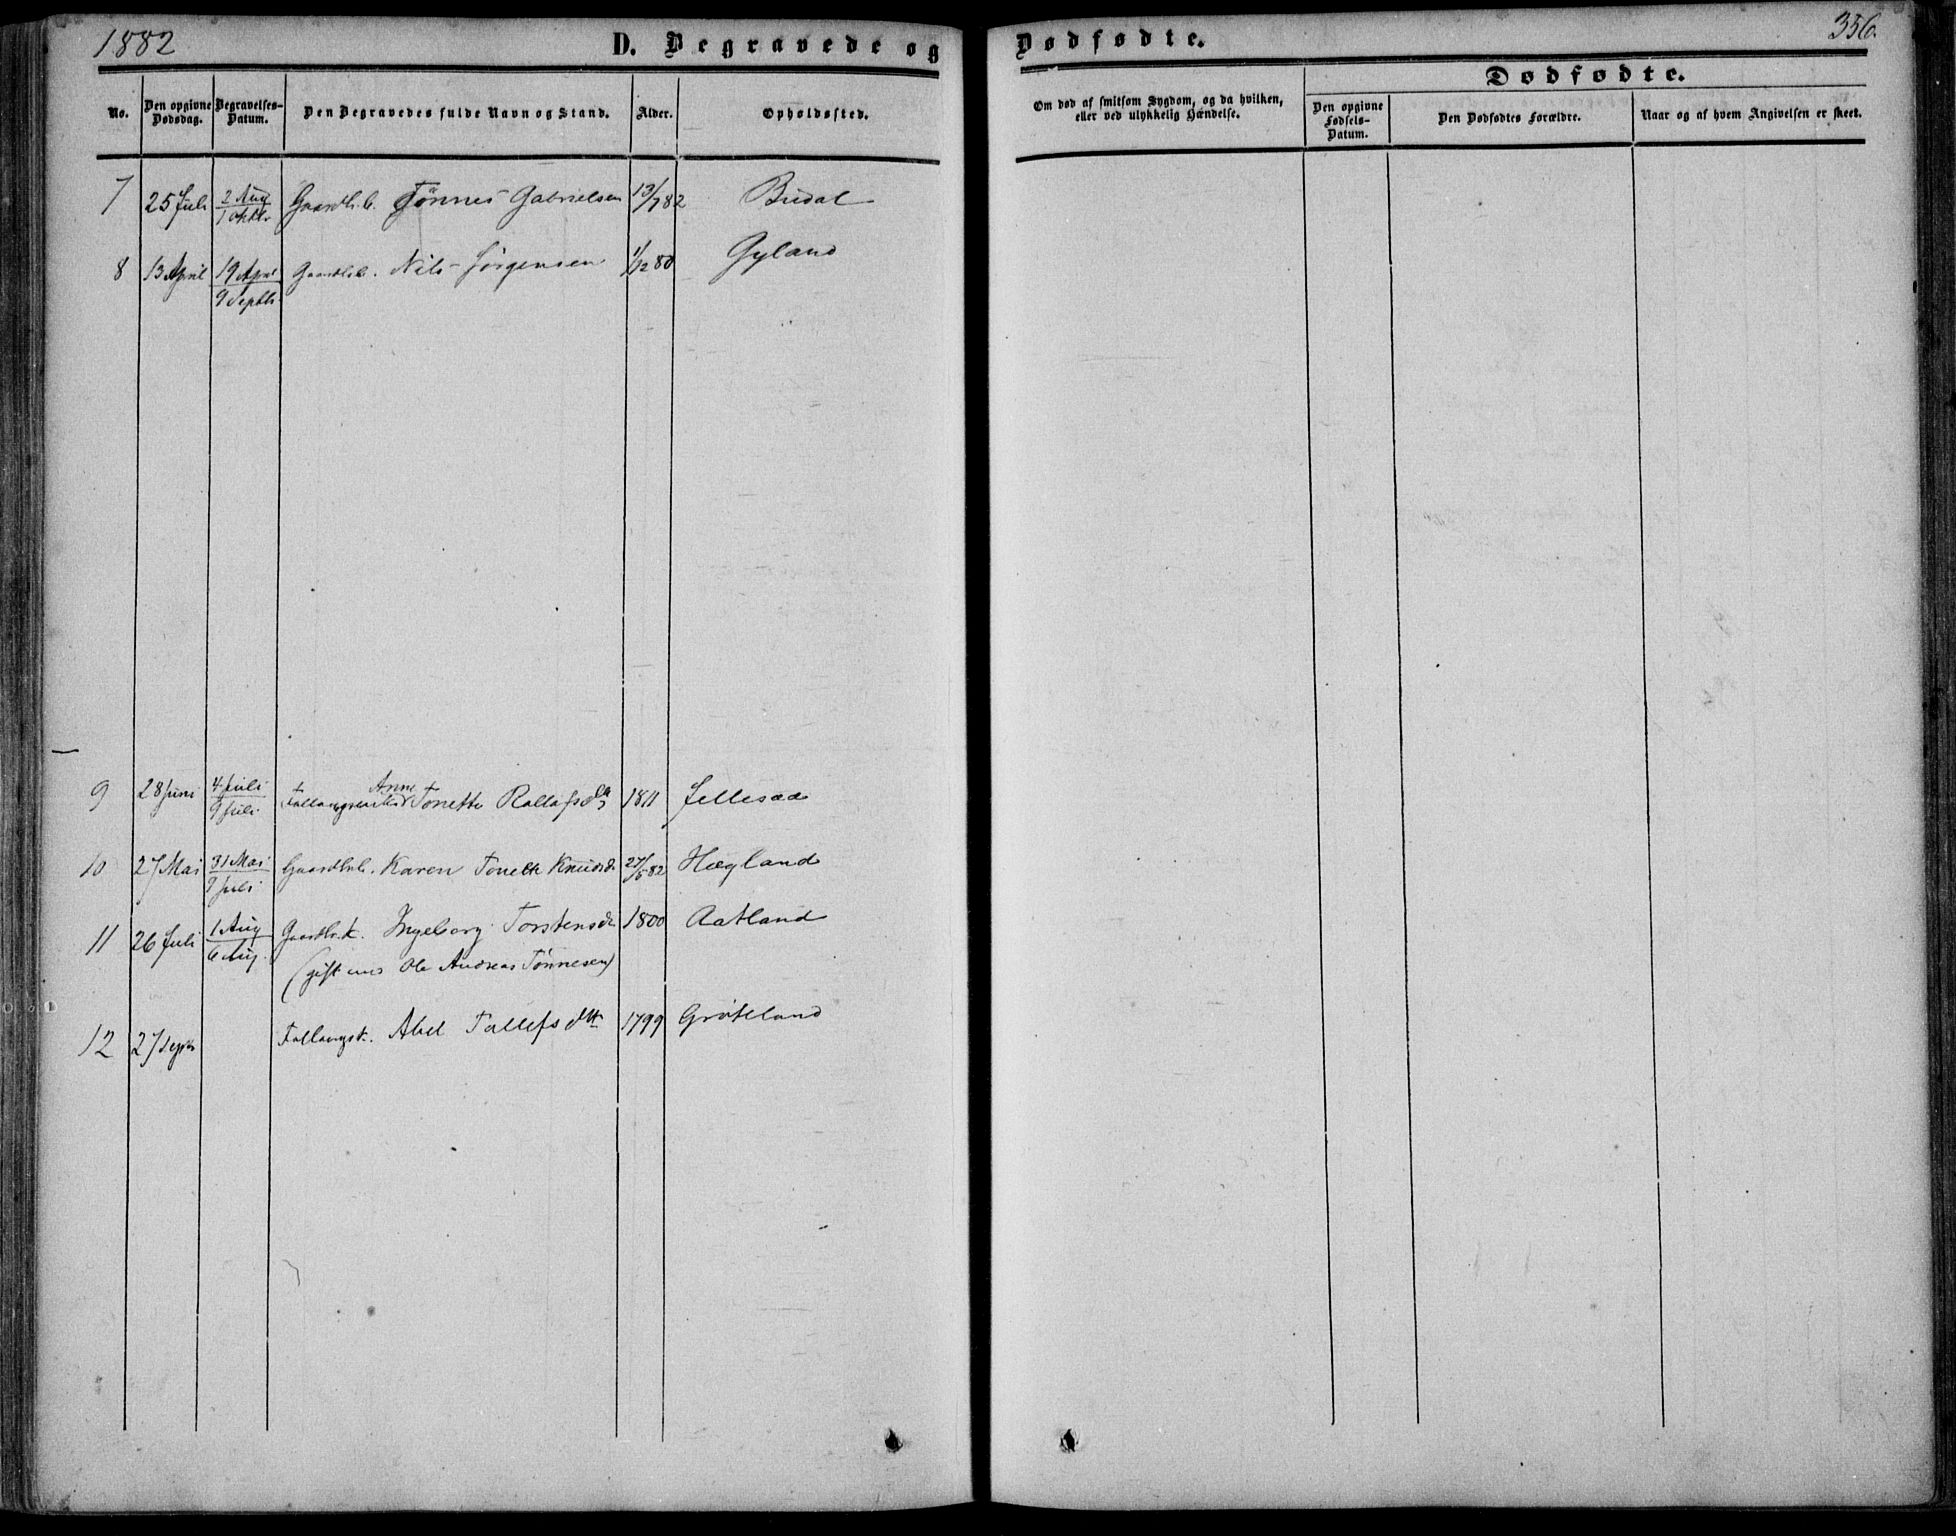 1882
D. Begravede og Dødfødte.
356.
No.
Den opgivne Dødsdag.
Begravelses-Datum.
Den Begravedes fulde Navn og Stand.
Alder.
Opholdssted.
Om død af smitsom Sygdom, og da hvilken, eller ved ulykkelig Hændelse.
Dødfødte.
Den opgivne Fødsels-Datum.
Den Dødfødtes Forældre.
Naar og af hvem Angivelsen er skeet.
7 25 Juli 2 Aug / 1 Oktbr Gaardbr. b. Tönnes Gabrielsen 13/7 82 Budal
8 13 April 19 April / 9 Septbr Gaardbr. b. Nils Jörgensen 1/12 80 Gyland
9 28 Juni 4 Juli / 9 Juli Anne Tonette Rollefsd 1811
10 27 Mai 31 Mai / 9 Juli Gaardbrb. Karen Tonette Knudsd. 27/5 82 Hægland
11 26 Juli 1 Aug / 6 Aug. Gaardbr.k. Ingeborg Torstensd 1800 Aatland
(gift med Ole Andreas Tönnesen)
12 27 Septbr Follaugsk. Abel Tallefsdtr 1799 Gröteland